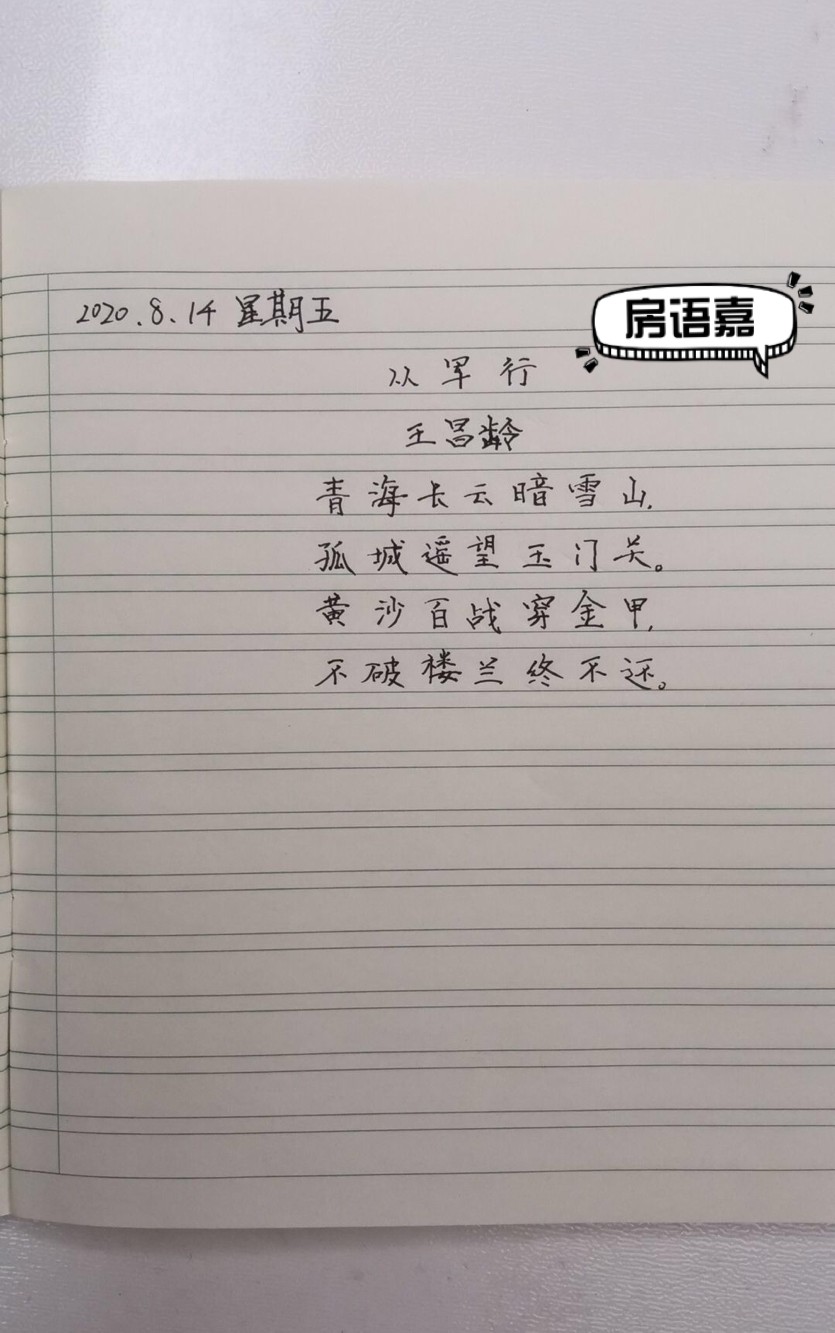 2020.8.14 星期五
房语嘉
从军行
王昌龄
青海长云暗雪山,
孤城遥望玉门关。
黄沙百战穿金甲,
不破楼兰终不还。